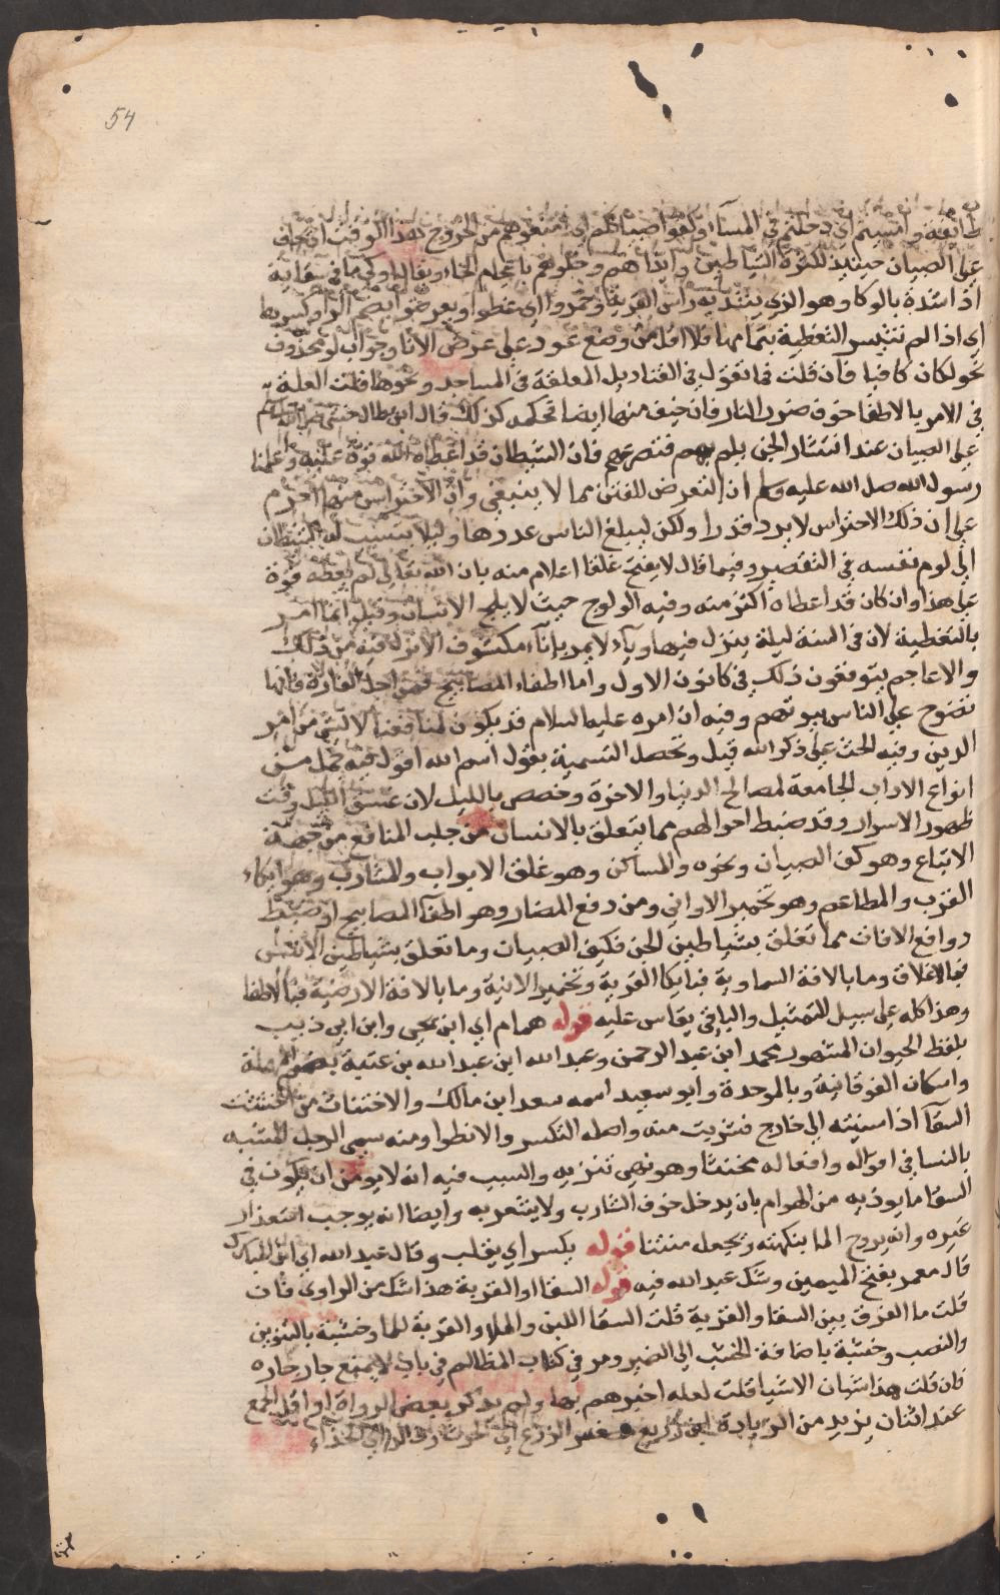 54
طائفة وامسيتم اي دخلتم في المساء وكفوا صبيانكم اي امنعوهم من الخروج هذا الوقت اي يخاف
على الصبيان حينيذ لكثرة الشياطين وايذاهم وخلوهم باعجام الخاء ويقال اوكى ما في سقاية
اذا شدة بالوكا وهو الذي يشد به راس القربة وخمروا اي غطوا وتعرضوا بضم الراء وكسرها
اي اذا لم تتيسر التغطية بتمامها فلا اقل من وضع عود على عرض الانا وجواب لو محذوف
نحو لكان كافيا فان قلت فما تقول في القناديل المعلقة في المساجد ونحوها قلت العلة
في الامر بالاطفا خوف ضرر النار فان خيف منها ايضا فحكمه كذلك قال ابن بطال خشي صلى الله عليه وسلم
على الصبيان عند انتشار الجن ان تلم بهم فتصرعهم فان الشيطان قد اعطاه الله قوة عليه واعلمنا
رسول الله صلى الله عليه وسلم ان التعرض للفتن مما لا ينبغي وان الاحتراس منها احزم
على ان ذلك الاحتراس لا يرد قدرا ولكن ليبلغ الناس عذرها وليلا يتسبب له الشيطان
الى لوم نفسه في التقصير وفيما قال لا يفتح غلقا اعلام منه بان الله تعالى لم يعطه قوة
على هذا وان كان قد اعطاه اكثر منه وفيه الولوج حيث لا يلج الانسان وقيل انما امر
بالتغطية لان في السنة ليلة ينزل فيها وباء لا يمر باناء مكشوف الا نزل فيه من ذلك
والاعاجم يتوقعون ذلك في كانون الاول واما اطفاء المصابيح فمن اجل الفارة فانها
تضرح على الناس بيوتهم وفيه ان امره عليه السلام قد يكون لمنافعنا لا لشي من امر
الدين وفيه الحث على ذكر الله قيل وتحصل التسمية بقول اسم الله اقول فيه جمل من
انواع الاداب الجامعة لمصالح الدنيا والاخرة وخصص بالليل لان غسق الليل وقت
ظهور الاسرار وقد ضبط احوالهم مما يتعلق بالانسان من جلب المنافع من جهة
الاتباع وهو كف الصبيان ونحوه والمساكن وهو غلق الابواب والمشارب وهو ايكاء
القرب والمطاعم وهو تخمير الاواني ومن دفع المضار وهو اطفا المصابيح او ضبط
دوافع الافات مما تعلق بشياطين الجن فكف الصبيان وما تعلق بشياطين الانس
فبالاغلاق وما بالافة السماوية فبايكا القربة وتخمير الانية وما بالافة الارضية فبالاطفا
وهذا كله على سبيل التمثيل والباقي يقاس عليه قوله همام اي ابن يحيى وابن ابي ذيب
بلفظ الحيوان المشهور محمد ابن عبد الرحمن وعبد الله ابن عبد الله بن عتبة بضم المهملة
واسكان الفوقانية وبالموحدة وابو سعيد اسمه سعد ابن مالك والاختناث من اختنثت
السقا اذا ثنيته الى خارج فشربت منه واصله التكسر والانطوا ومنه سمى الرجل المتشبه
بالنسا في اقواله وافعاله مخنثا وهو نهي تنزيه والسبب فيه انه لا يومن ان يكون في
السقا ما يوذيه من الهوام بان يدخل جوف الشارب ولا يشعر به وايضا انه يوجب استعذار
غيره وانه يروح الما بنكهته ويجعل منتنا قوله بكسر اي يقلب وقال عبد الله اي ابن المبارك
قال معمر بفتح الميمين وشك عبد الله فيه قوله السقا او القربة هذا شك من الراوى فان
قلت ما الفرق بين السقا والقربة قلت السقا اللبن والما والقربة للما وخشبة بالتنوين
والنصب وخشبه باضافة الخشب الى الضمير ومر في كتاب المظالم في باب لا يمنع جار جاره
فان قلت هذا شيان الاشيا قلت لعله اخبرهم بها ولم يذكر بعض الرواة او اقل الجمع
عنده اثنان يزيد من الزيادة ابن زريع مصغر الزرع اي الحرث